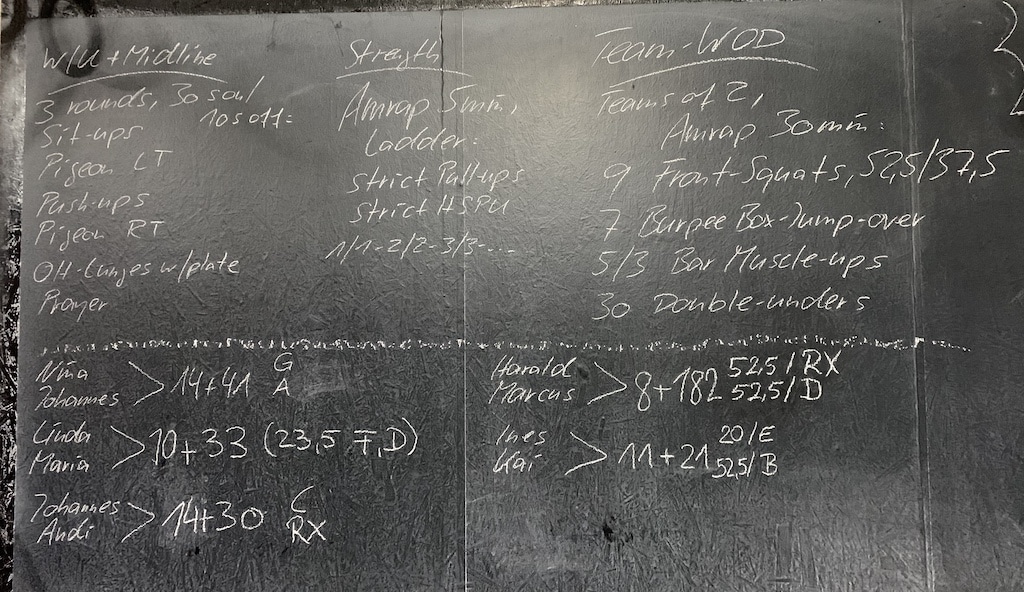 W/U + Midline
3 rounds, 30s on/
10s off:
Sit-ups
Pigeon LT
Push-ups
Pigeon RT
OH-Lunges w/plate
Prayer
Strength
Amrap 5min,
Ladder:
strict Pull-ups
strict HSPU
1/1-2/2-3/3-....
Team-WOD
Teams of 2,
Amrap 30min:
9 Front-Squats, 52,5/37,5
7 Burpee Box-Jump-over
5/3 Bar Muscle-ups
30 Double-unders
Nina
Johannes > 14+41 G
A
Linda
Maria > 10+33 (23,5 F, D)
Johannes
Andi > 14+30 C
RX
Harald
Marcus > 8+182 52,5/RX
52,5/D
Ines
Kai > 11+21 20/E
52,5/B